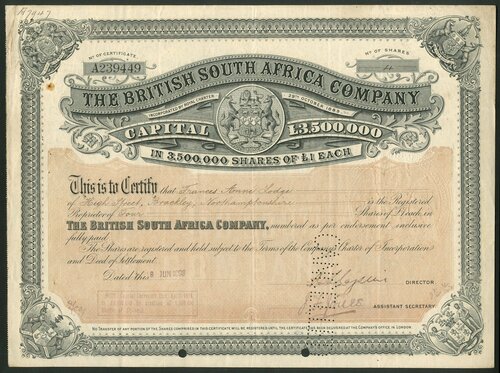 Nº OF CERTIFICATE
A239449
Nº OF SHARES
THE BRITISH SOUTH AFRICA COMPANY
INCORPORATED BY ROYAL CHARTER 29TH OCTOBER 1889
CAPITAL £3,500,000
IN 3,500,000 SHARES OF £1 EACH
This is to Certify that Frances Annie Lodge
of High Street, Brackley, Northamptonshire is the Registered
Proprietor of Four Shares of £1 each in
THE BRITISH SOUTH AFRICA COMPANY, numbered as per endorsement inclusive
fully paid.
The Shares are registered and held subject to the Terms of the Company's Charter of Incorporation
and Deed of Settlement.
Dated this 8 JUN
DIRECTOR.
ASSISTANT SECRETARY.
NO TRANSFER OF ANY PORTION OF THE SHARES COMPRISED IN THIS CERTIFICATE WILL BE REGISTERED UNTIL THE CERTIFICATE HAS BEEN DELIVERED AT THE COMPANY'S OFFICE IN LONDON.